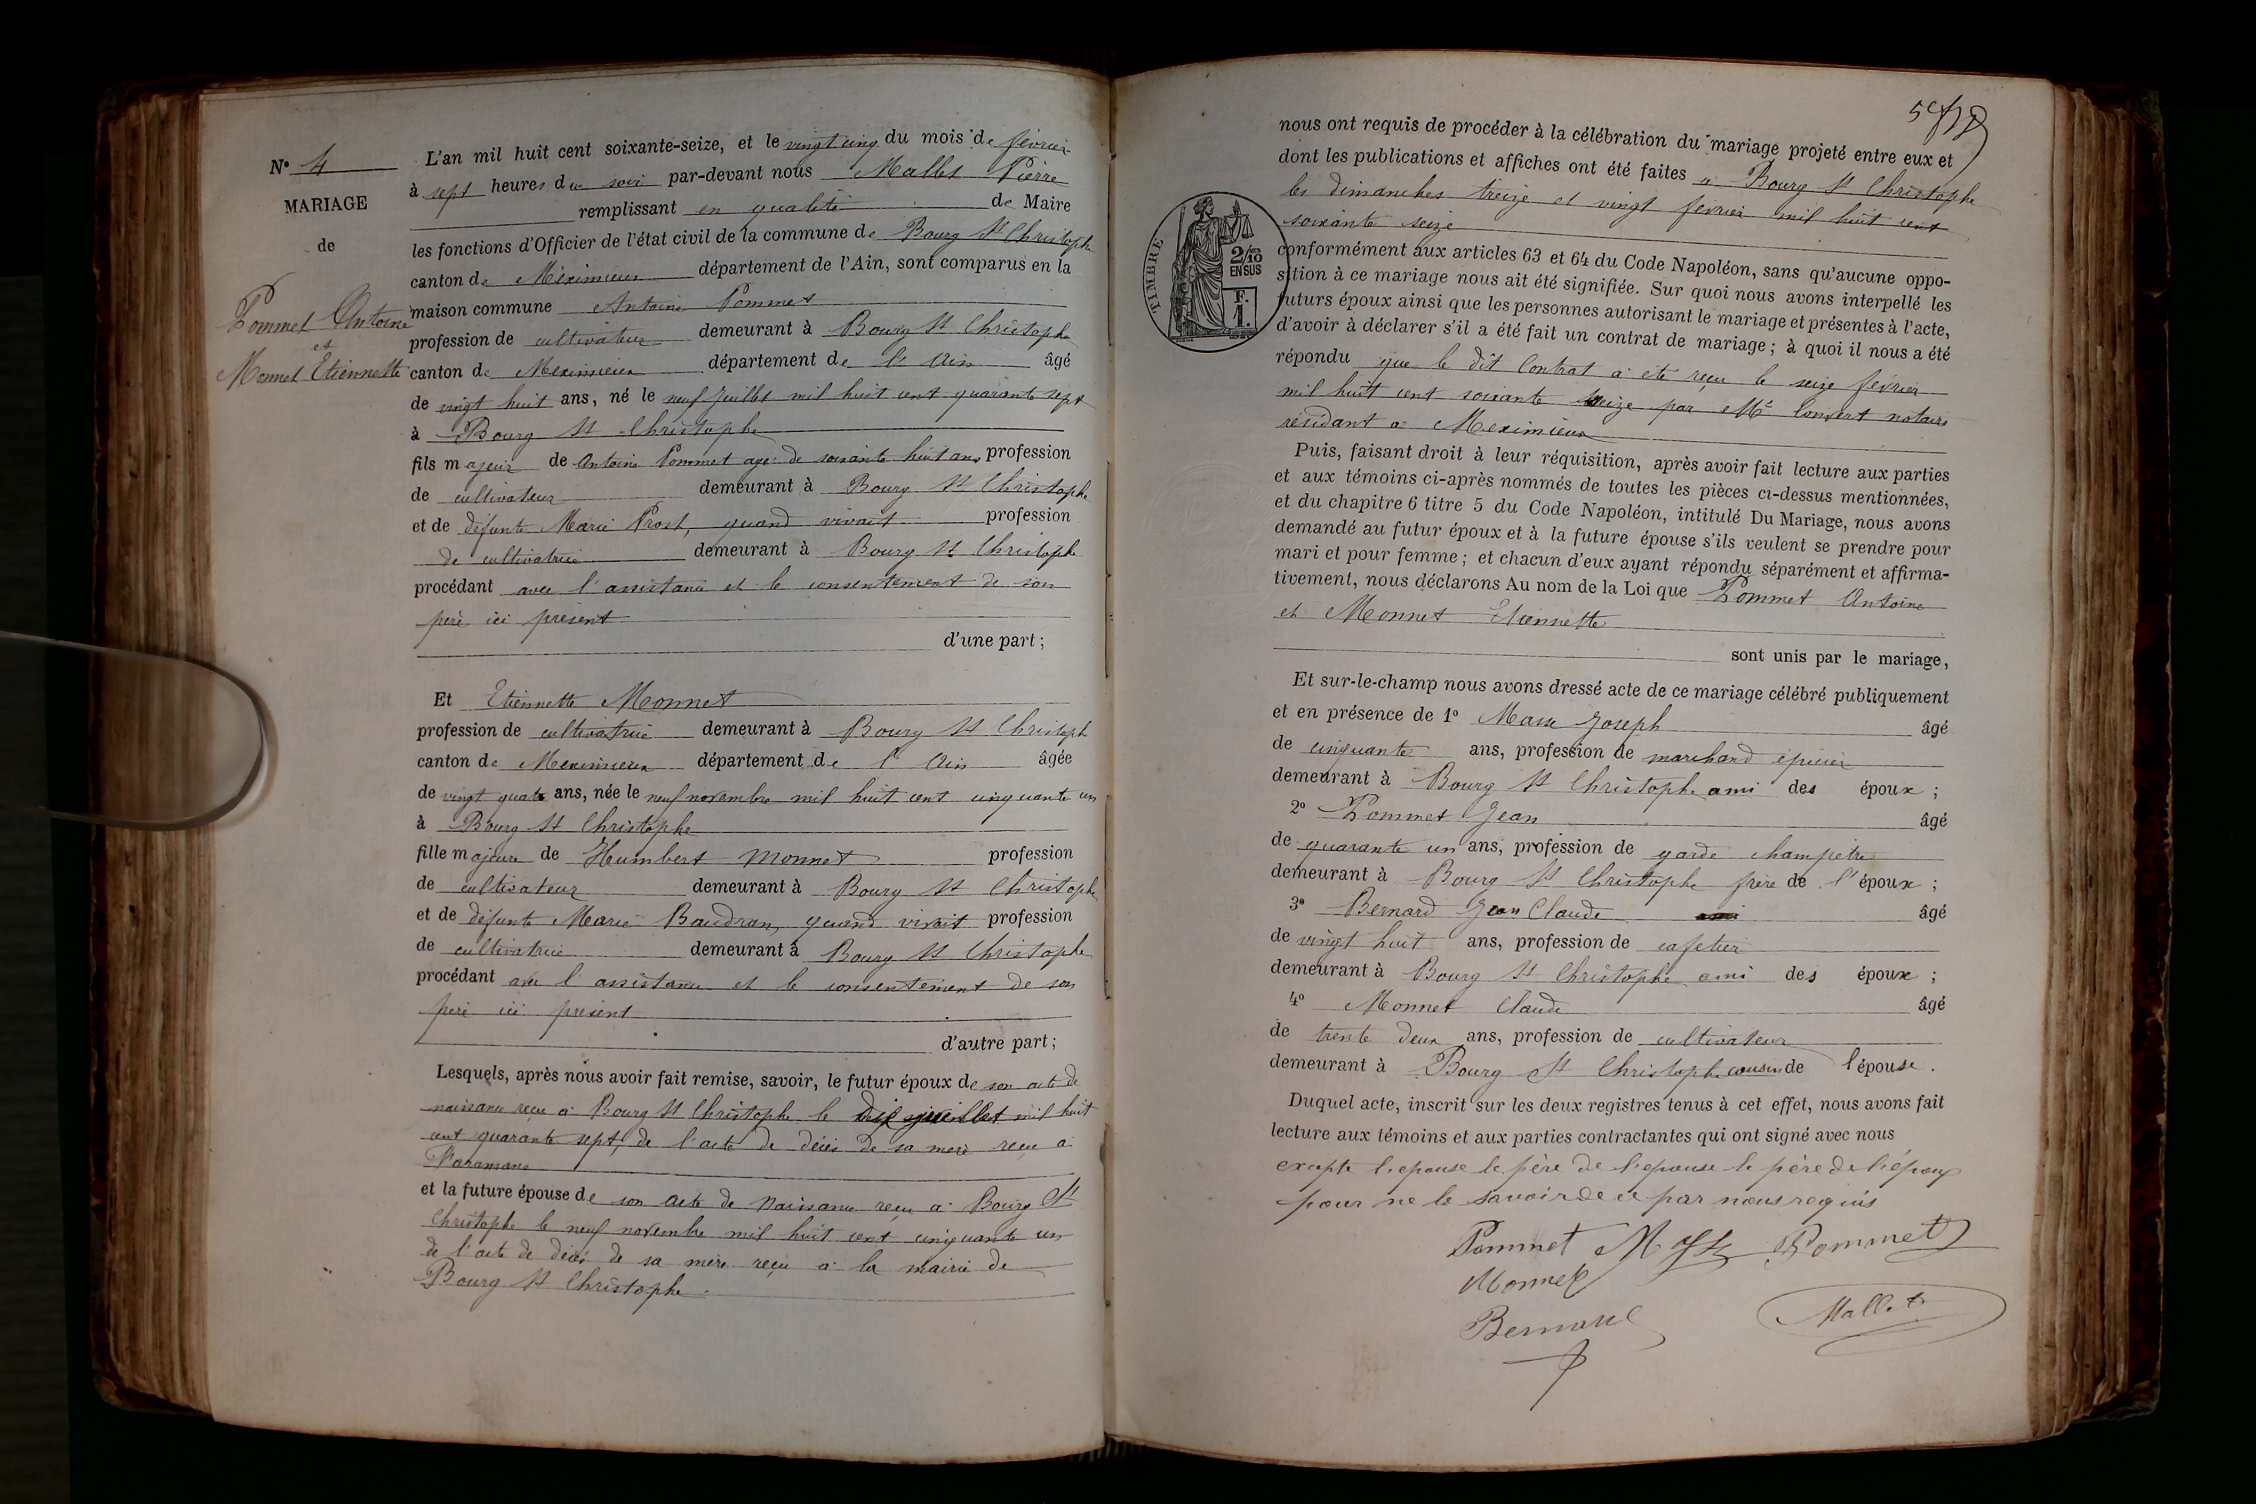 N° 4
MARIAGE
de
Pommet Antoine
et
Monnet Etiennette
L'an mil huit cent soixante-seize, et le vingt cinq du mois de février
à sept heures du soir par-devant nous Mallet Pierre
remplissant en qualité de Maire
les fonctions d'Officier de l'état civil de la commune de Bourg St Christophe
canton de Méximieux département de l'Ain, sont comparus en la
maison commune Antoine Pommet
profession de cultivateur demeurant à Bourg St Christophe
canton de Meximieux département de l'Ain âgé
de vingt huit ans, né le neuf Juillet mil huit cent quarante sept
à Bourg St Christophe
fils majeur de Antoine Pommet agé de soixante huit ans profession
de cultivateur demeurant à Bourg St Christophe
et de défunte Marie Prost, quand vivait profession
de cultivatrice demeurant à Bourg St Christophe
procédant avec l'assistance et le consentement de son
père ici présent
d'une part;
Et Etiennette Monnet
profession de cultivatrice demeurant à Bourg St Christoph
canton de Meximieux département de l'Ain âgée
de vingt quatre ans, née le neuf novembre mil huit cent cinquante un
à Bourg St Christophe
fille majeure de Humbert Monnet profession
de cultivateur demeurant à Bourg St Christophe
et de défunte Marie Baudran, quand vivait profession
de cultivatrice demeurant à Bourg St Christophe
procédant avec l'assistance et le consentement de son
père ici présent
d'autre part;
Lesquels, après nous avoir fait remise, savoir, le futur époux de son acte de
naissance reçu à Bourg St Christophe le dix juillet mil huit
cent quarante sept, de l'acte de décès de sa mère reçu à
Faramans
et la future épouse de son acte de naissance reçu à Bourg St
Christophe le neuf novembre mil huit cent cinquante un
de l'acte de décès de sa mère reçu à la mairie de
Bourg St Christophe.
nous ont requis de procéder à la célébration du mariage projeté entre eux et
dont les publications et affiches ont été faites à Bourg St Christophe
les dimanches treize et vingt février mil huit cent
soixante seize
TIMBRE
2/10
EN SUS
F.
1.
conformément aux articles 63 et 64 du Code Napoléon, sans qu'aucune oppo-
sition à ce mariage nous ait été signifiée. Sur quoi nous avons interpellé les
futurs époux ainsi que les personnes autorisant le mariage et présentes à l'acte,
d'avoir à déclarer s'il a été fait un contrat de mariage; à quoi il nous a été
répondu que le dit Contrat a été reçu le seize février
mil huit cent soixante seize par Me Convert notaire
résidant à Meximieux
Puis, faisant droit à leur réquisition, après avoir fait lecture aux parties
et aux témoins ci-après nommés de toutes les pièces ci-dessus mentionnées,
et du chapitre 6 titre 5 du Code Napoléon, intitulé Du Mariage, nous avons
demandé au futur époux et à la future épouse s'ils veulent se prendre pour
mari et pour femme; et chacun d'eux ayant répondu séparément et affirma-
tivement, nous déclarons Au nom de la Loi que Pommet Antoine
et Monnet Etiennette
sont unis par le mariage,
Et sur-le-champ nous avons dressé acte de ce mariage célébré publiquement
et en présence de 1° Masse Joseph âgé
de cinquante ans, profession de marchand épicier
demeurant à Bourg St Christophe ami des époux;
2° Pommet Jean âgé
de quarante un ans, profession de garde champêtre
demeurant à Bourg St Christophe frère de l'époux;
3° Bernard Jean Claude âgé
de vingt huit ans, profession de cafetier
demeurant à Bourg St Christophe ami des époux;
4° Monnet Claude âgé
de trente deux ans, profession de cultivateur
demeurant à Bourg St Christophe cousin de l'épouse.
Duquel acte, inscrit sur les deux registres tenus à cet effet, nous avons fait
lecture aux témoins et aux parties contractantes qui ont signé avec nous
excepte l'epouse le père de l'epouse le père de l'époux
pour ne le savoir de ce par nous requis
Pommet Masse Pommet
Monnet
Bernard
Mallet